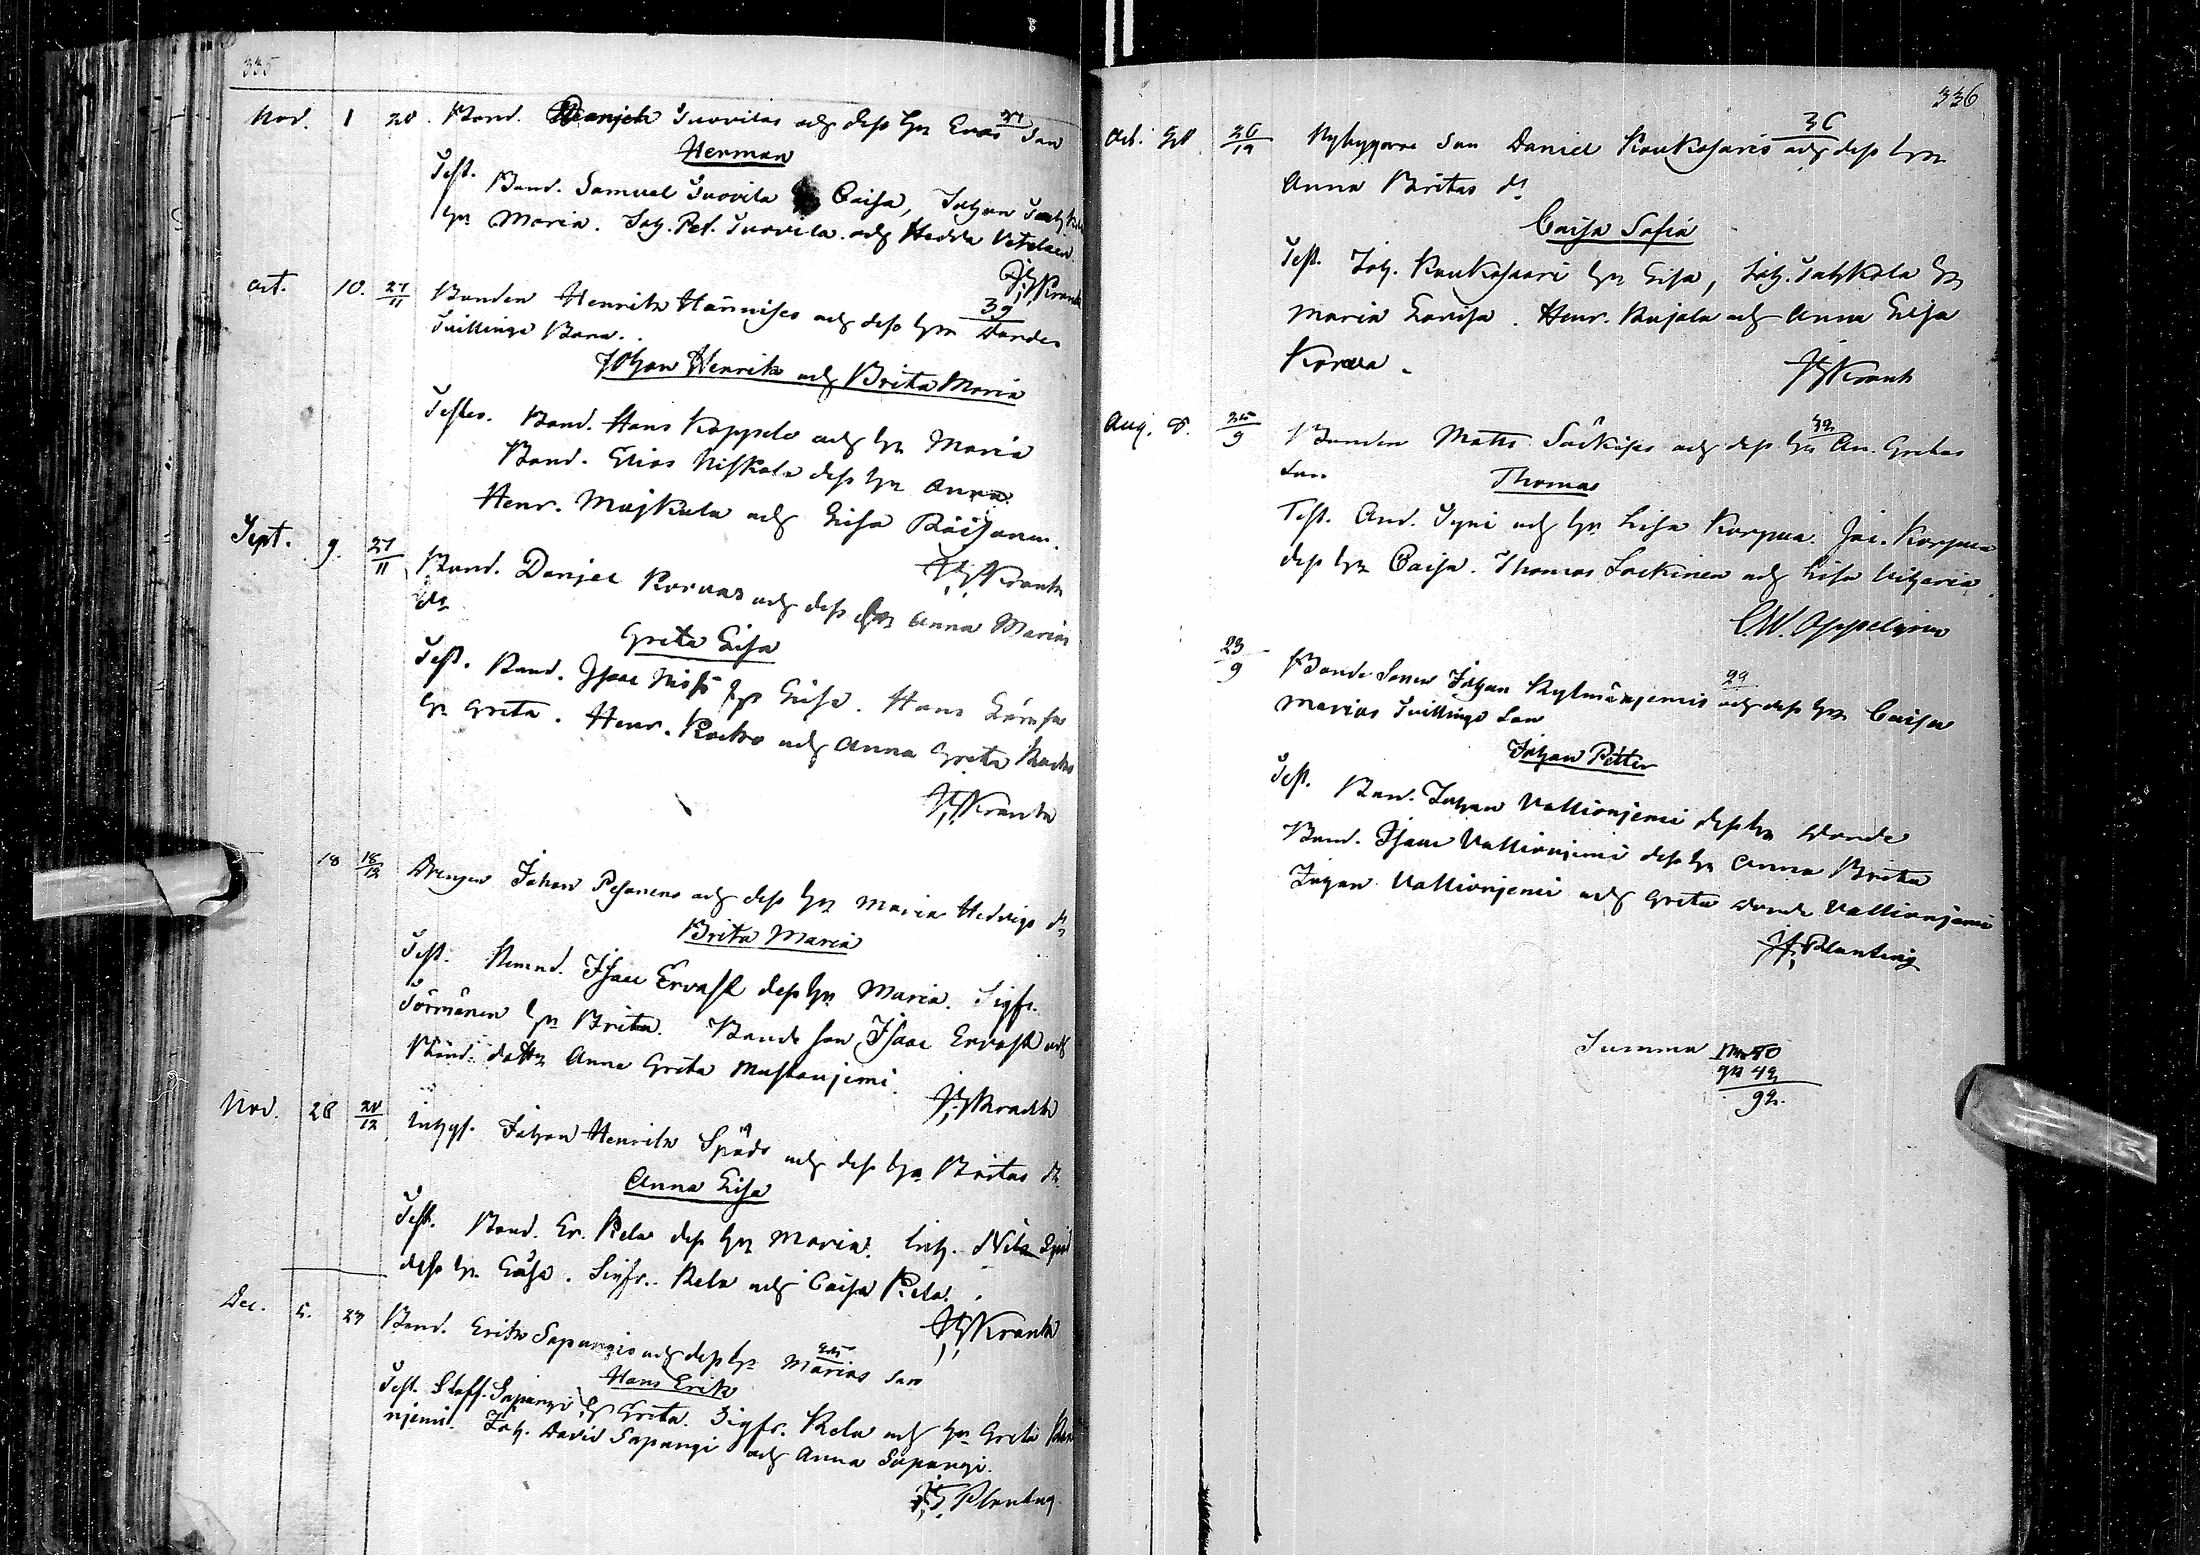 335
Nov. 1 20. Bond. Danjel Tuovilas och dess hu Evas 27 son
Herman
Test. Bond. Samuel Tuovila Caisa, Johan
hu Maria. Joh. Pet. Tuovila och Hedda
Krank
Oct. 10. 27/11 Bonden Henrik Hannises och dess hu 39 Wandes
Tvillinge Barn.
Johan Henrik och Brita Maria
Testes. Bond. Hans Kappele och hu Maria
Bond. Elias Niskala dess hu Anna
Henr. Majkala och Lisa Räisänen.
Krank
Sept. 9. 27/11 Bond. Danjel Korvas och dess hu Anna Marias
dr
Greta Lisa
Test. Bond. Isaac Niska hu Lisa. Hans
hu Greta. Henr. och Anna Greta
Krank
18 18/12 Drengen Johan Pesonens och dess hu Maria Hedvigs dr
Brita Maria
Test. Nemnd. Isaac Ervast dess hu Maria. Sigfr.
Törmänen hu Brita. Bonde son Isaac Ervast och
Bond. dottr Anna Greta Mustanjemi.
Krank
Nov. 28 20/12 Inhys. Johan Henrik Späds och dess hu Britas dr
Anna Lisa
Test. Bond. Er. Kela dess hu Maria. Inh.
dess hu Caisa. Sigfr. Kela och Caisa Kela.
Krank
Dec. 5. 27 Bond. Erik Sapangis och dess hu Marias 25 son
Hans Erik
Test. Staff. Sapangi hu Greta. Sigfr. Kela och hu Greta
njemi. Joh. David Sapangi och Anna Sapangi.
Planting
336
Oct. 20 26/12 Nybyggare Son Daniel Koukosaris 36 och dess hu
Anna Britas dr
Caisa Sofia
Test. Joh. Koukosaari hu Lisa, Joh. Jahkola hu
Maria Lovisa. Henr. Kujala och Anna Lisa
Korva.
Krank
Aug. 8. 25/9 Bonden Matts Säkkises och dess hu 32 An. Gretas
Son
Thomas
Test. And. Tyni och hu Lisa Korpua. Jac. Korpua
dess hu Caisa. Thomas Säckinen och Lisa
C.W. Appelgren
23/9 Bonde Sonen Johan Kylmänjemis 29 och dess hu Caisa
Marias Tvillinge Son
Johan Petter
Test. Bon. Johan Vallionjemi dess hu Wande
Bond. Isaac Vallionjemi dess hu Anna Brita
Johan Vallionjemi och Greta Wande Vallionjemi
Planting
Summa Mn 50
qn 42
92.